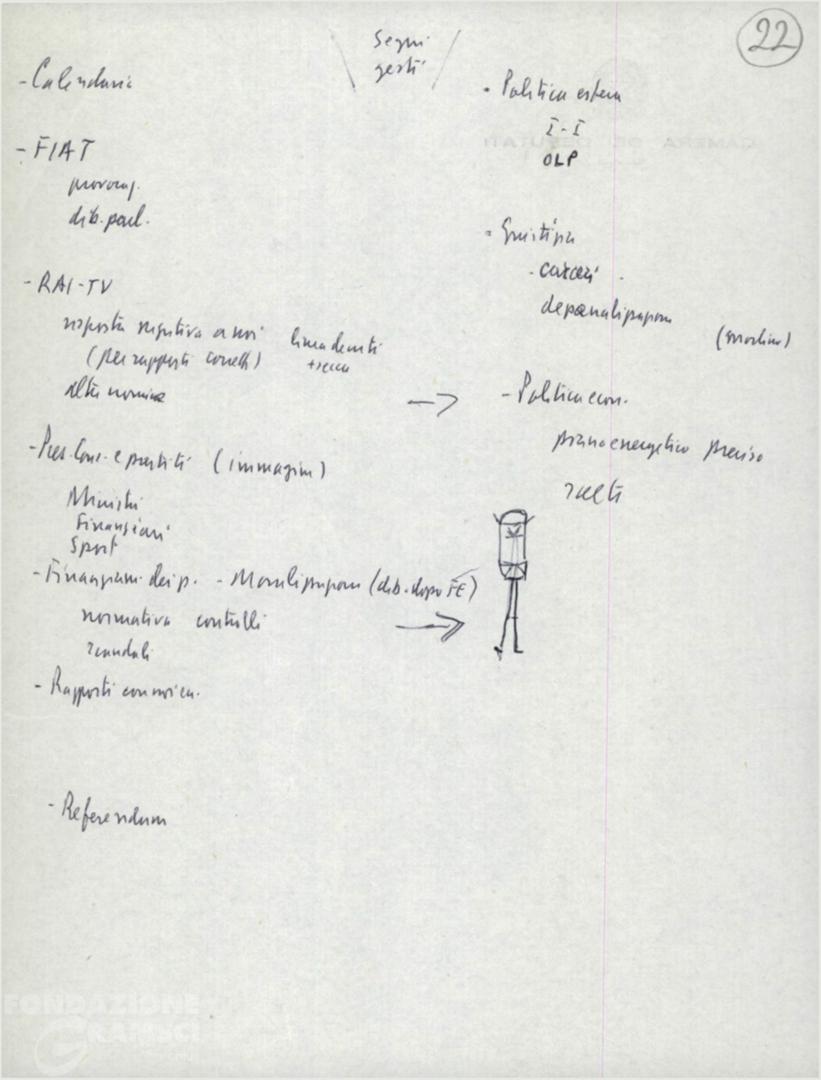 22
Segni
gesti
- Calendario
- FIAT
provoc.
dib. parl.
- RAI-TV
risposta negativa a noi
(per rapporti corretti)
altre nomine
- Pres. Cons. e partiti (immagini)
Ministri
Finanziari
Sport
- Finanziam. dei p. - Moralizzazione (dib. dopo FE)
normativa controlli
scandali
- Rapporti con noi
- Referendum
- Politica estera
I-I
OLP
- Giustizia
- carceri -
depenalizzazione
- Politica econ.
piano energetico preciso
scelte
CAMERA DEI DEPUTATI
FONDAZIONE
GRAMSCI